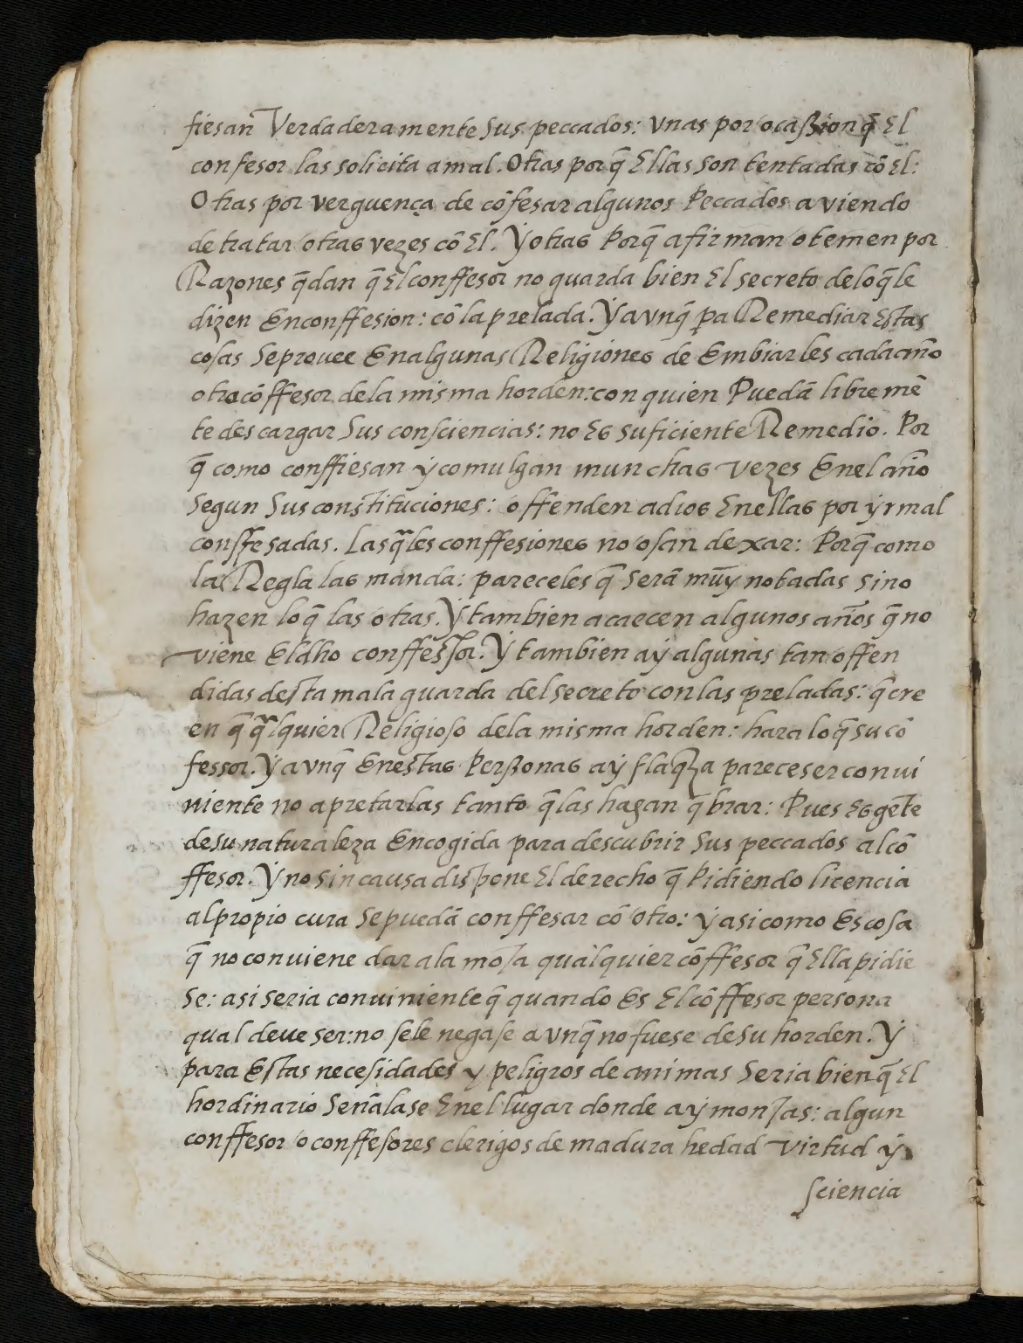 fiesan Verdaderamente sus peccados: Vnas por ocassion q̃ el
confesor las solicita a mal. Otras porq̃ Ellas son tentadas cõ El:
Otras por verguença de cõfesar algunos Peccados aviendo
de tratar otras vezes cõ El. Y otras Porq̃ afirman o temen por
Razones q̃ dan q̃ El conffesor no guarda bien El secreto delo q̃ le
dizen Enconffesion: cõ la prelada. Y avnq̃ pa Remediar Estas
cosas Se provee En algunas Religiones de Embiarles cada año
otro cõffesor dela misma horden: con quien Puedã libremẽ
te descargar Sus consciencias: no Es suficiente Remedio. Por
q̃ como conffiesan y comulgan munchas vezes Enel año
Segun Sus constituciones: offenden a dios Enellas por yr mal
conffesadas. Las q̃les conffesiones no osan dexar: Porq̃ como
la Regla las manda: pareceles q̃ Serã mũy notadas sino
hazen lo q̃ las otras. Y tambien acaecen algunos años q̃ no
viene El dho conffessor. Y tambien ay algunas tan offen
didas desta mala guarda del secreto con las preladas: q̃ cre
en q̃ q̃lquier Religioso dela misma horden: hara lo q̃ su cõ
fessor. Y avnq̃ Enestas Personas ay flaq̃za parece ser convi
niente no apretarlas tanto q̃ las hagan q̃brar: Pues Es gẽte
de su naturaleza Encogida para descubrir Sus peccados al cõ
ffesor. Y no sin causa dispone El derecho q̃ Pidiendo licencia
al propio cura Se puedã conffesar cõ otro: y asi como Es cosa
q̃ no conviene dar ala moja qualquier cõffesor q̃ Ella pidie
se: asi seria conviniente q̃ quando Es El cõffesor persona
qual deve ser: no se le negase avnq̃ no fuese de su horden. Y
para Estas necesidades y peligros de animas Seria bien q̃ El
hordinario Señalase Enel lugar donde ay monjas: algun
conffesor o conffesores clerigos de madura hedad virtud y
sciencia